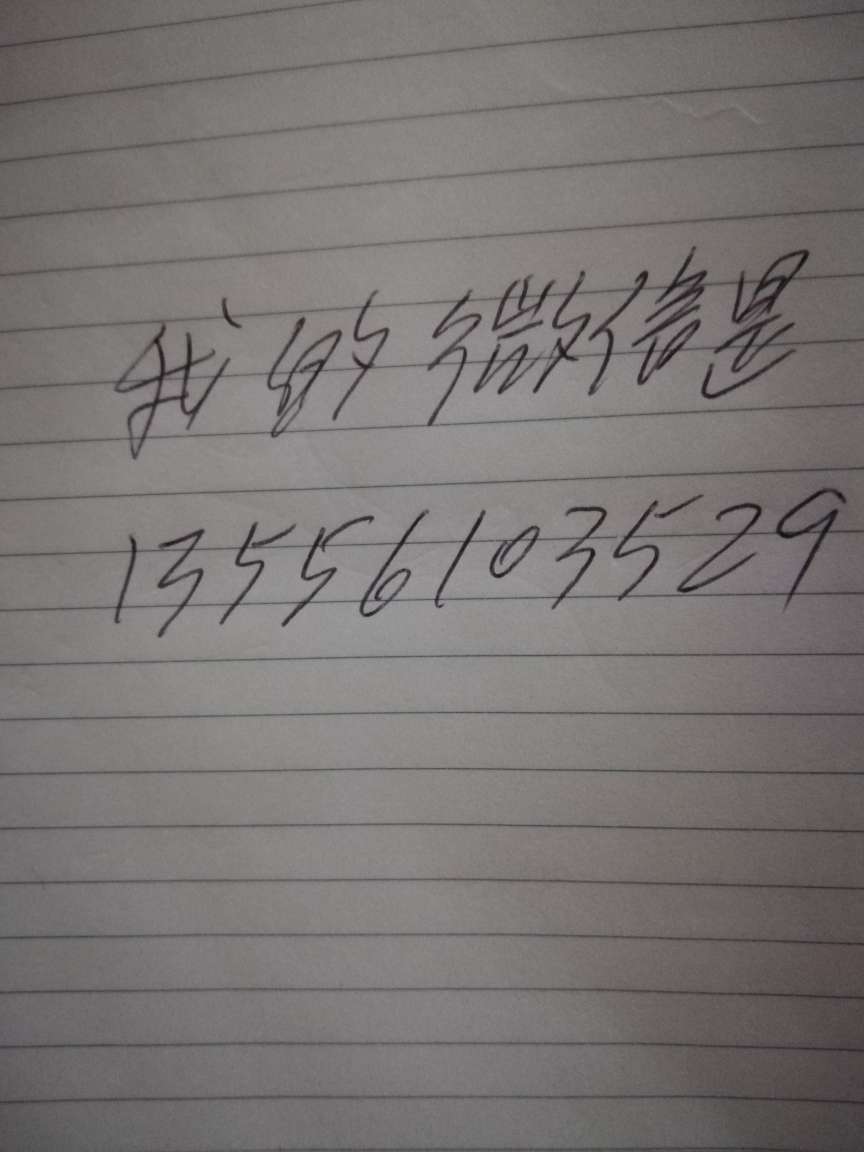 我的微信是
13556103529